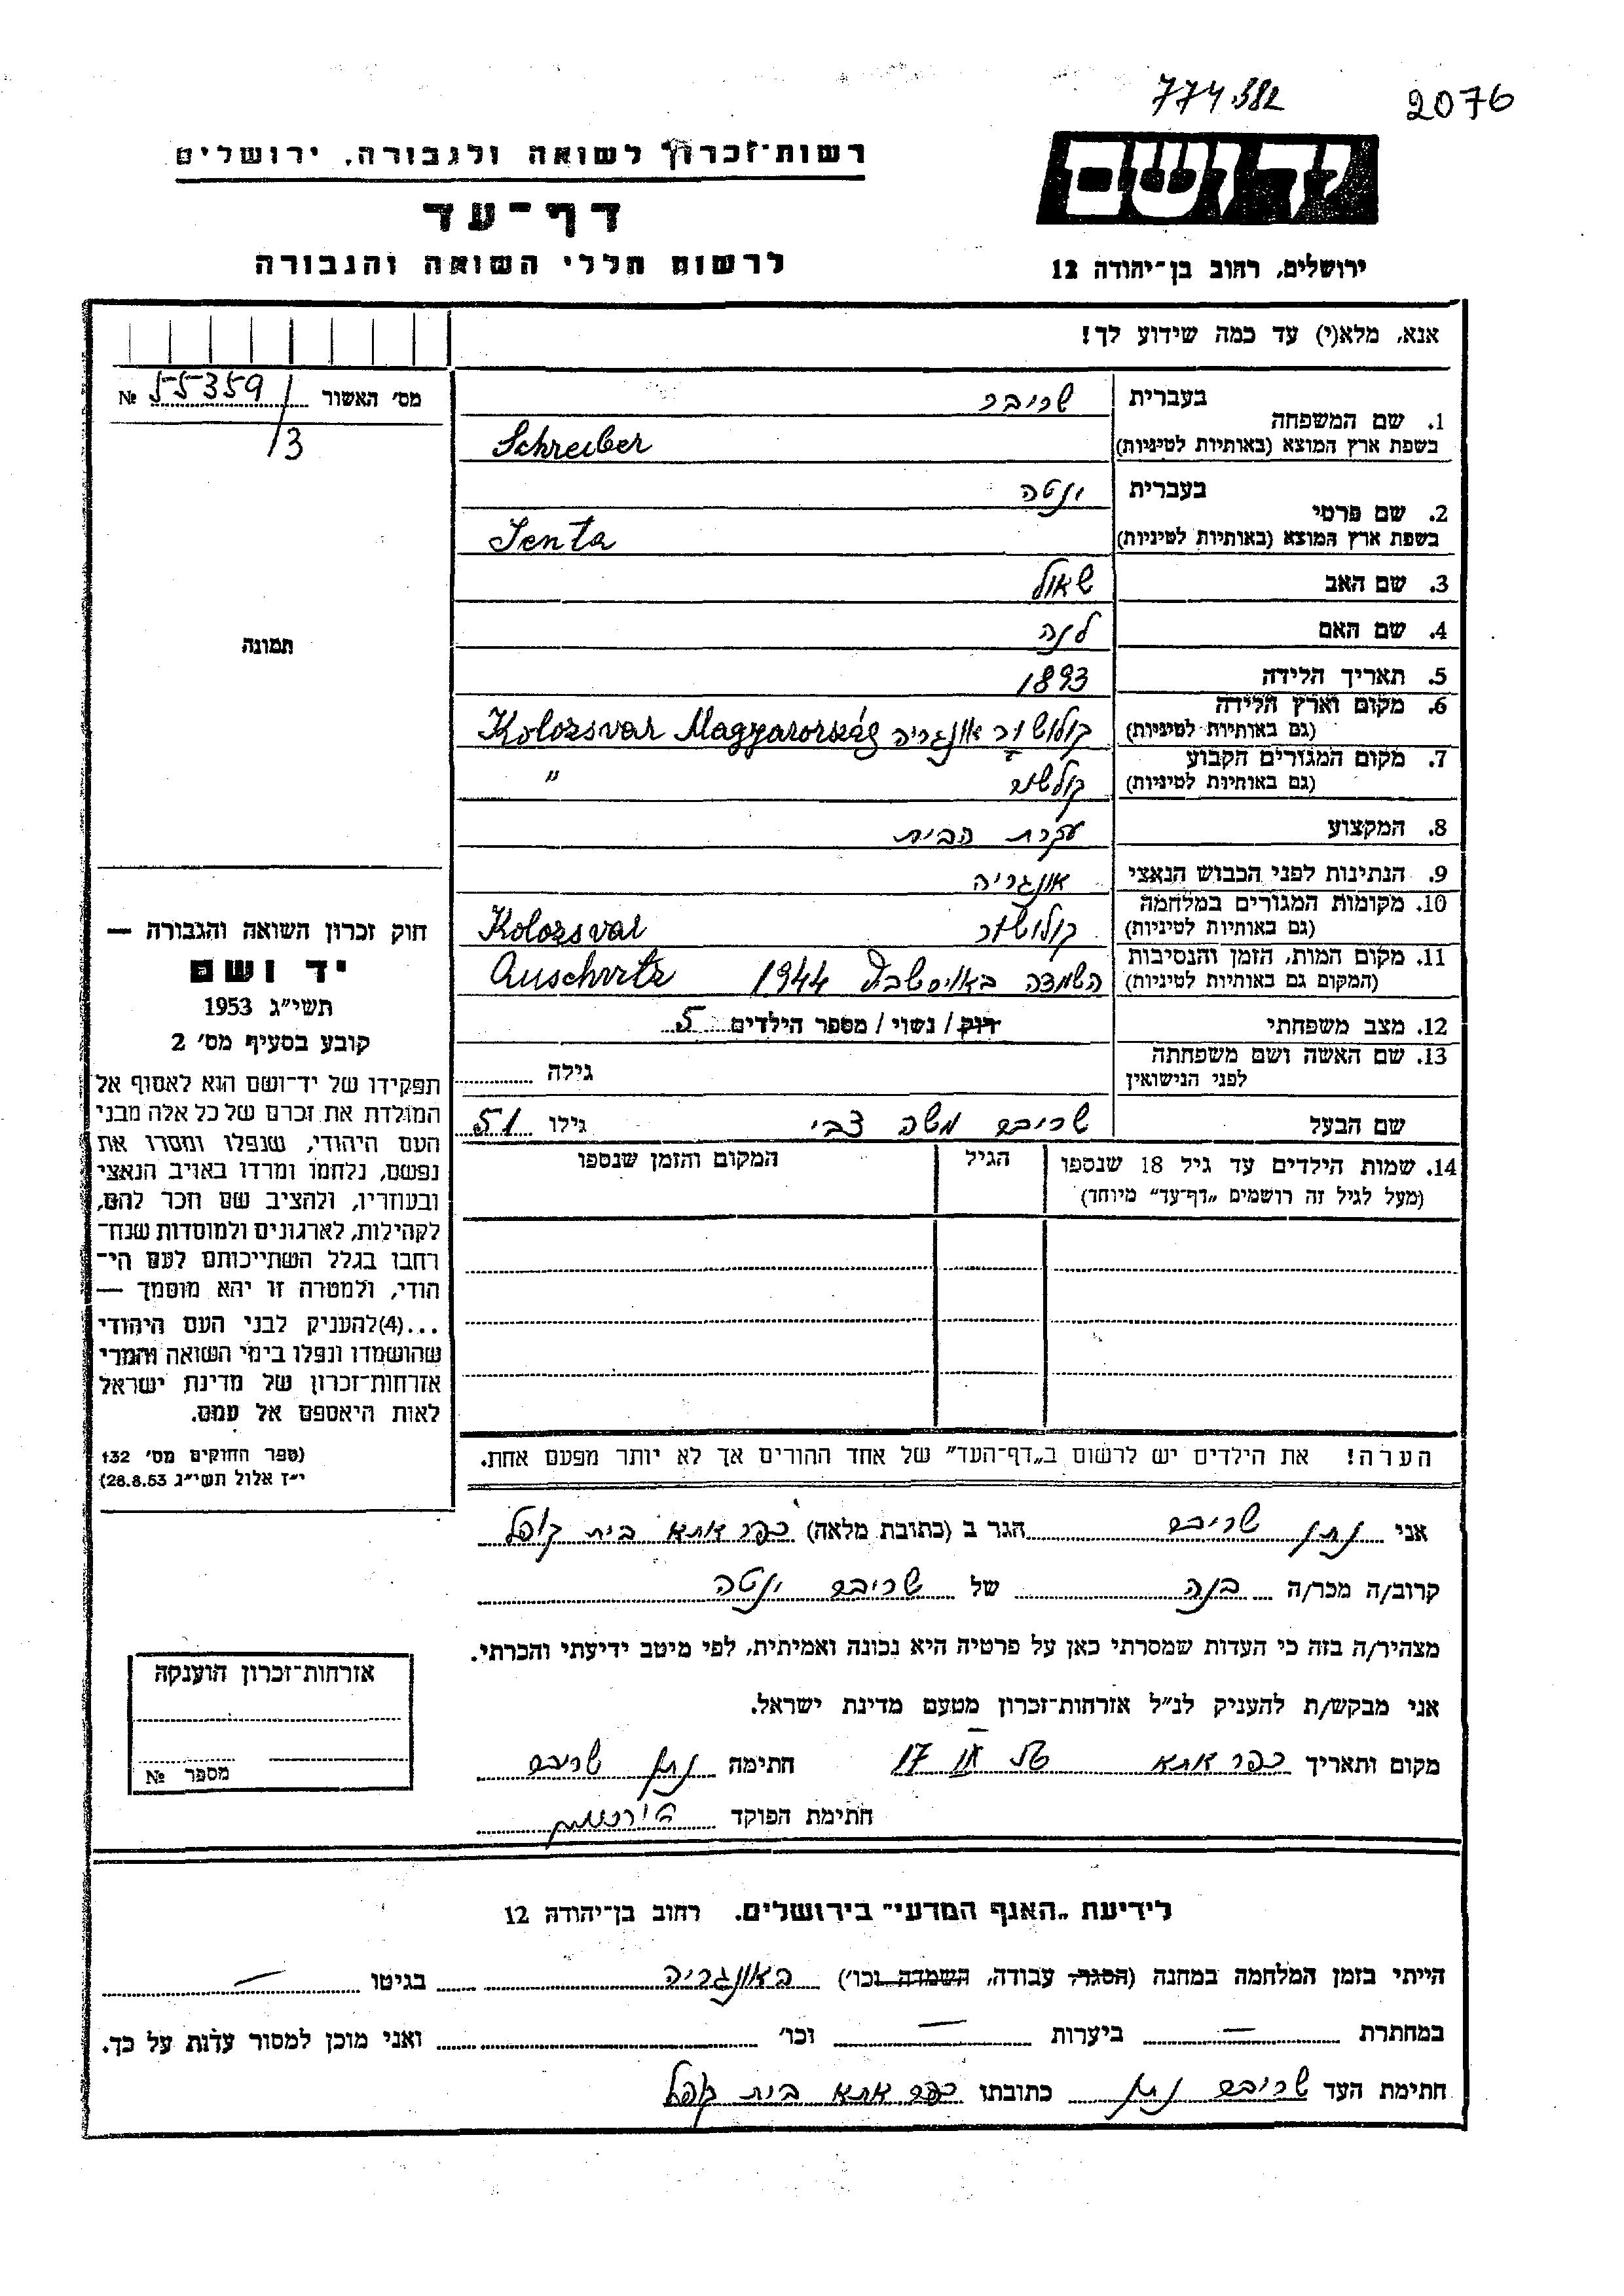 774.382 2076
יד ושם
רשות־זכרון לשואה ולגבורה, ירושלים
דף־עד
לרשום חללי השואה והגבורה
ירושלים, רחוב בן־יהודה 12
אנא, מלא(י) עד כמה שידוע לך!
מס׳ האשור 55359/13 №
1. שם המשפחה
בעברית שרייבר
בשפת ארץ המוצא (באותיות לטיניות) Schreiber
2. שם פרטי
בעברית ינטה
בשפת ארץ המוצא (באותיות לטיניות) Jenta
3. שם האב שאול
4. שם האם לנה
5. תאריך הלידה 1893
6. מקום וארץ הלידה
(גם באותיות לטיניות) קולושור אונגריה Kolozsvar Magyarország
7. מקום המגורים הקבוע
(גם באותיות לטיניות) קולשור "
8. המקצוע עקרת הבית
9. הנתינות לפני הכבוש הנאצי אונגריה
10. מקומות המגורים במלחמה
(גם באותיות לטיניות) קולושור Kolozsvar
11. מקום המות, הזמן והנסיבות
(המקום גם באותיות לטיניות) השמדה 1944 Auschvitz
12. מצב משפחתי רוק / נשוי / מספר הילדים 5
13. שם האשה ושם משפחתה
לפני הנישואין גילה
שם הבעל שרייבר משה צבי גילו 51
14. שמות הילדים עד גיל 18 שנספו הגיל המקום והזמן שנספו
(מעל לגיל זה רושמים „דף־עד” מיוחד)
הערה! את הילדים יש לרשום ב„דף־העד” של אחד ההורים אך לא יותר מפעם אחת.
תמונה
חוק זכרון השואה והגבורה —
יד ושם
תשי״ג 1953
קובע בסעיף מס׳ 2
תפקידו של יד־ושם הוא לאסוף אל
המולדת את זכרם של כל אלה מבני
העם היהודי, שנפלו ומסרו את
נפשם, נלחמו ומרדו באויב הנאצי
ובעוזריו, ולהציב שם וזכר להם,
לקהילות, לארגונים ולמוסדות שנח־
רבו בגלל השתייכותם לעם הי־
הודי, ולמטרה זו יהא מוסמך —
...(4)להעניק לבני העם היהודי
שהושמדו ונפלו בימי השואה והמרי
אזרחות־זכרון של מדינת ישראל
לאות היאספם אל עמם.
(ספר החוקים מס׳ 132
י״ז אלול תשי״ג 28.8.53)
אני נתן שרייבר הגר ב (כתובת מלאה) כפר אתא בית קופל
קרוב/ה מכר/ה בנה של שרייבר ינטה
מצהיר/ה בזה כי העדות שמסרתי כאן על פרטיה היא נכונה ואמיתית, לפי מיטב ידיעתי והכרתי.
אני מבקש/ת להעניק לנ״ל אזרחות־זכרון מטעם מדינת ישראל.
מקום ותאריך כפר אתא 17 חתימה נתן שרייבר
חתימת הפוקד
אזרחות־זכרון הוענקה
מספר №
לידיעת „האגף המדעי” בירושלים, רחוב בן־יהודה 12
הייתי בזמן המלחמה במחנה (הסגר, עבודה, השמדה וכו׳) באונגריה בגיטו —
במחתרת — ביערות — וכו׳ ואני מוכן למסור עדות על כך.
חתימת העד שרייבר נתן כתובתו כפר אתא בית קופל